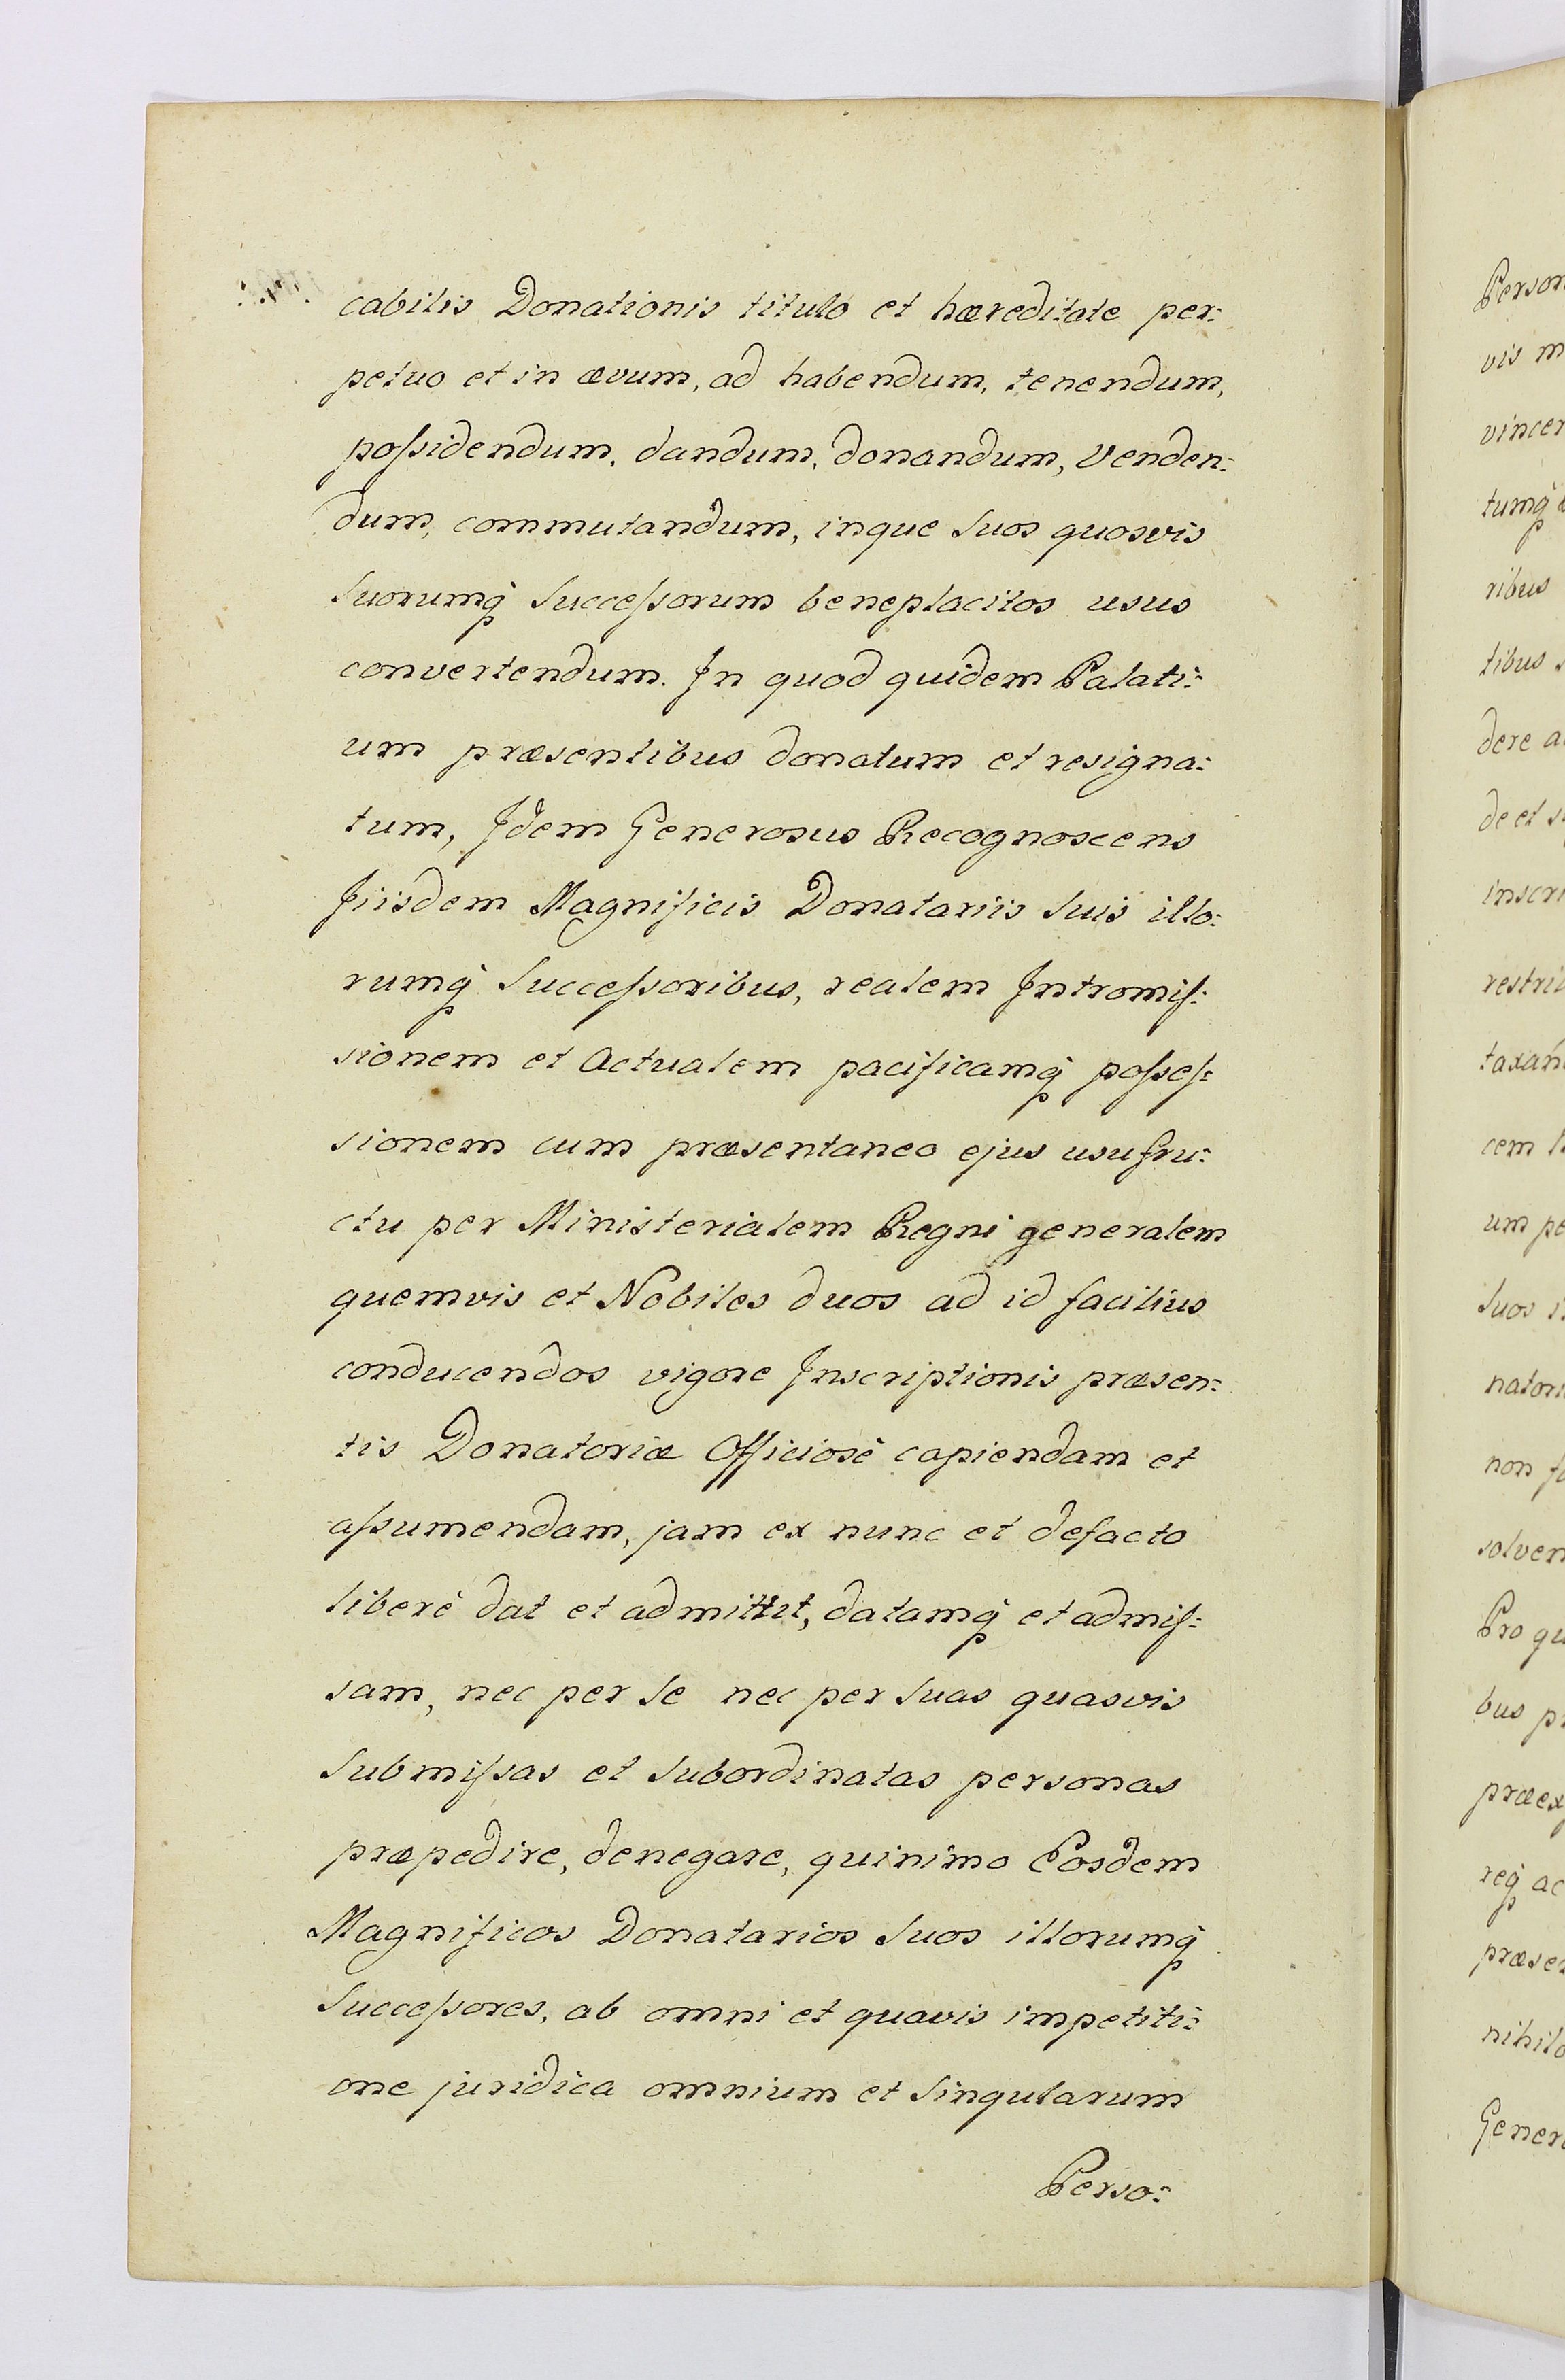 cabilis Donationis titulo et hæreditate per:
petuo et in ævum, ad habendum, tenendum,
poſsidendum, dandum, donandum, Venden:
dum, commutandum, inque Suos quosvis
Suorumq̃ Succeſsorum beneplacitos usus
convertendum. In quod quidem Palati:
um præsentibus donatum et resigna:
tum, Idem Generosus Recognoscens
Iisdem Magnificis Donatariis Suis illo:
rumq̃ Succeſsoribus, realem Intromiſ:
sionem et Actualem pacificamq̃ poſseſ:
sionem cum præsentaneo ejus usufru:
ctu per Ministerialem Regni generalem
quemvis et Nobiles duos ad id facilius
conducendos vigore Inscriptionis præsen:
tis Donatoriæ Officiosè capiendam et
aſsumendam, jam ex nunc et defacto
liberè dat et admittit, datamq̃ et admiſ:
sam, nec per Se nec per Suas quasvis
Submiſsas et Subordinatas personas
præpedire, denegare, quinimo Eosdem
Magnificos Donatarios Suos illorumq̃
Succeſsores, ab omni et quavis impetiti:
one juridica omnium et Singularum
Perso:
Person
vis m
vincen
tumq̃
ribus
tibus
dere a
de et s
inscri
restri
taxan
cem
um pe
Suos i
nator
non f
solven
Pro qu
bus p
præex
req̃ ac
præsen
nihilo
Gener